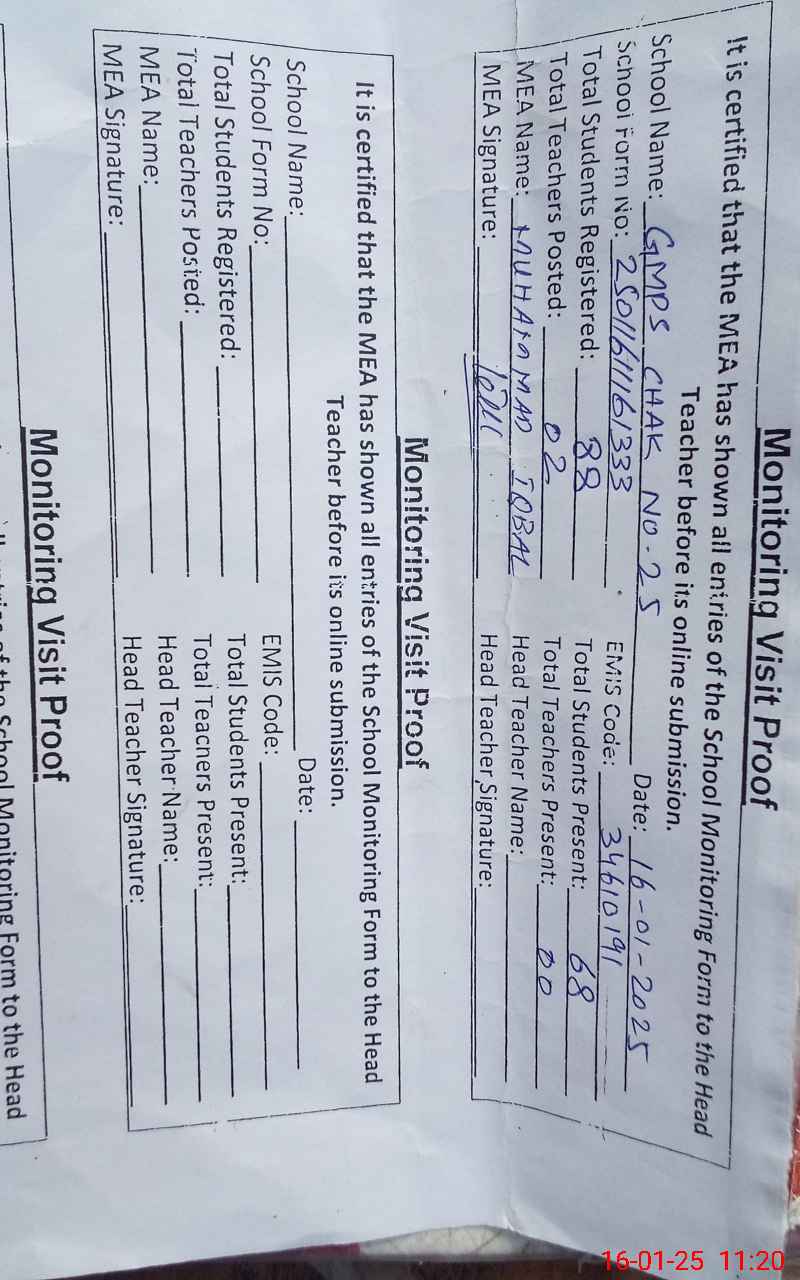 Monitoring Visit Proof
It is certified that the MEA has shown all entries of the School Monitoring Form to the Head
Teacher before its online submission.
School Name: GMPS CHAK NO. 25 Date: 16-01-2025
School Form No: 25011611161333 EMIS Code: 34610191
Total Students Registered: 88 Total Students Present: 68
Total Teachers Posted: 02 Total Teachers Present: 00
MEA Name: MUHAMMAD IQBAL Head Teacher Name:
MEA Signature: Head Teacher Signature:
Monitoring Visit Proof
It is certified that the MEA has shown all entries of the School Monitoring Form to the Head
Teacher before its online submission.
School Name: Date:
School Form No: EMIS Code:
Total Students Registered: Total Students Present:
Total Teachers Posted: Total Teachers Present:
MEA Name: Head Teacher Name:
MEA Signature: Head Teacher Signature:
Monitoring Visit Proof
all entries of the School Monitoring Form to the Head
16-01-25 11:20